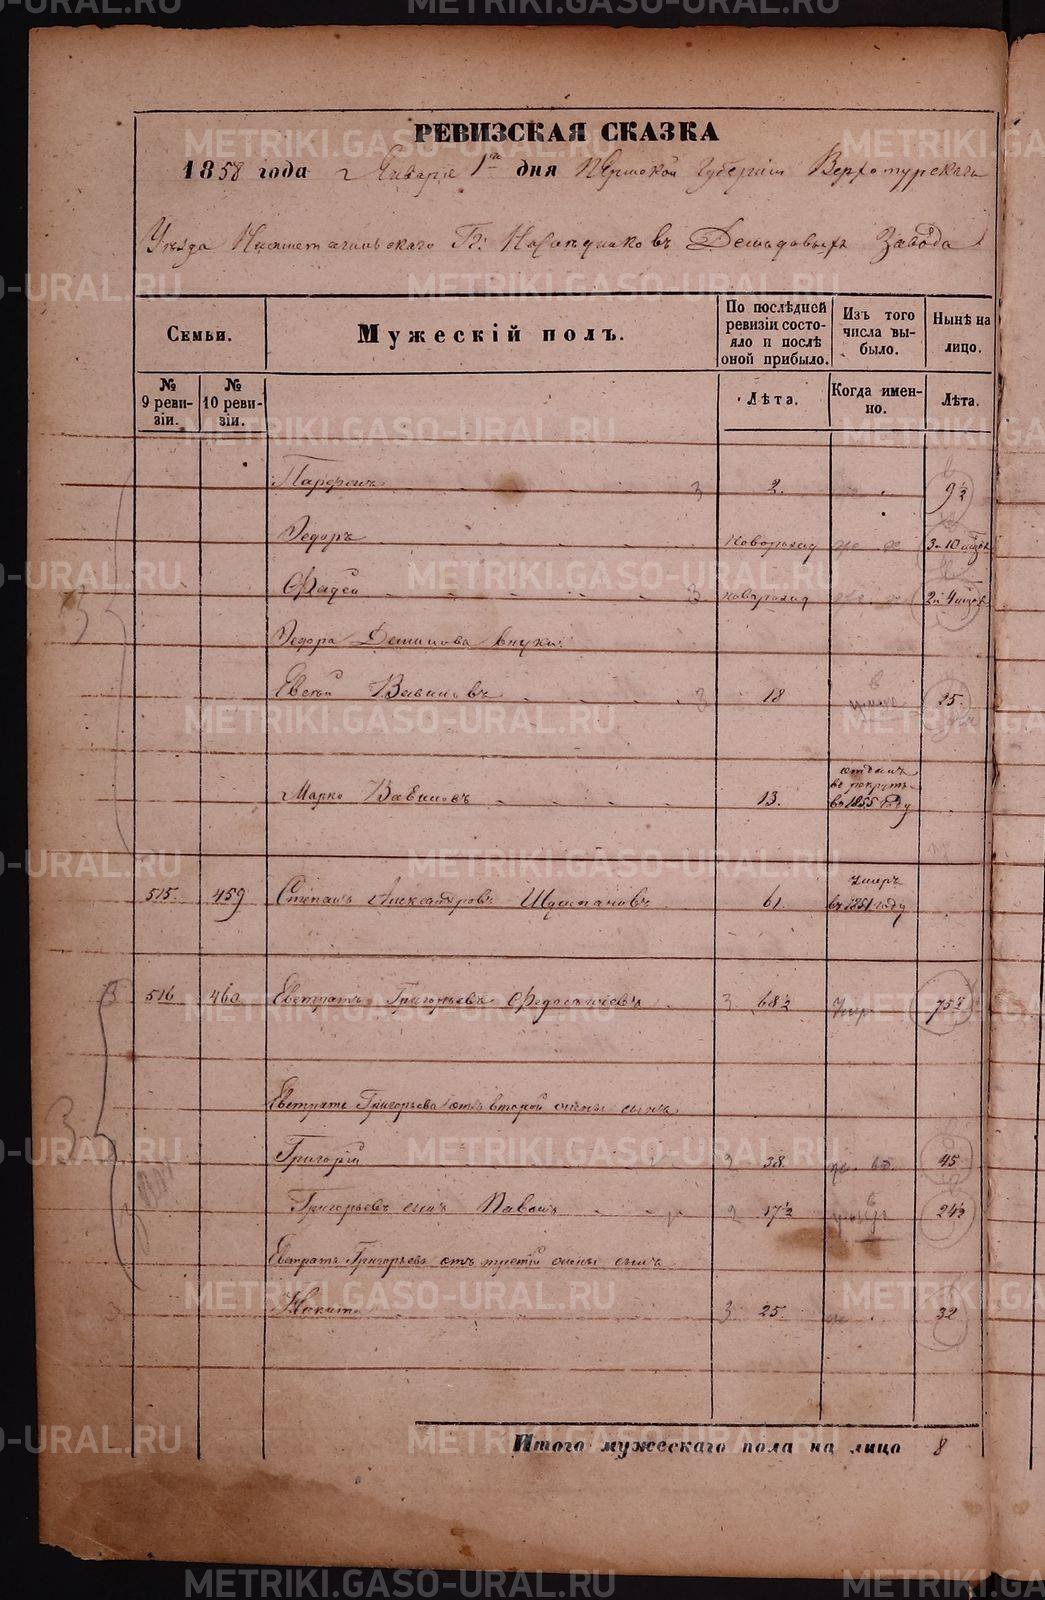 РЕВИЗСКАЯ СКАЗКА
1858 года Января 1го дня Пермской Губернии Верхотурскаго
Уѣзда Нижнетагильскаго Гг: Наслѣдниковъ Демидовыхъ Завода
Семьи.
Мужескій полъ.
По послѣдней ревизіи состояло и послѣ оной прибыло.
Изъ того числа выбыло.
Нынѣ на лицо.
№ 9 ревизіи.
№ 10 ревизіи.
Лѣта.
Когда именно.
Лѣта.
Парфенъ 3 2. 9½
Федоръ новорожд 3 и 10 мѣся
Фадей 3 новорожд 2 и 4 мѣся
Федора Демидова внуки:
Евсей Вавиловъ 3 18 25.
Марко Вавиловъ 13. отданъ
въ рекруты
въ 1855 году
515. 459 Степанъ Александровъ 61. умеръ
въ 1851 году
516 460 Евстратъ Григорьевъ 3 68½ 75½
Евстрата Григорьева отъ второй жены сынъ
Григорій 38 45
Григорьевъ сынъ 2 17½ 24½
Евстрата Григорьева отъ третьй жены сынъ
Никита 3 25. 32
Итого мужескаго пола на лицо 8
METRIKI.GASO-URAL.RU